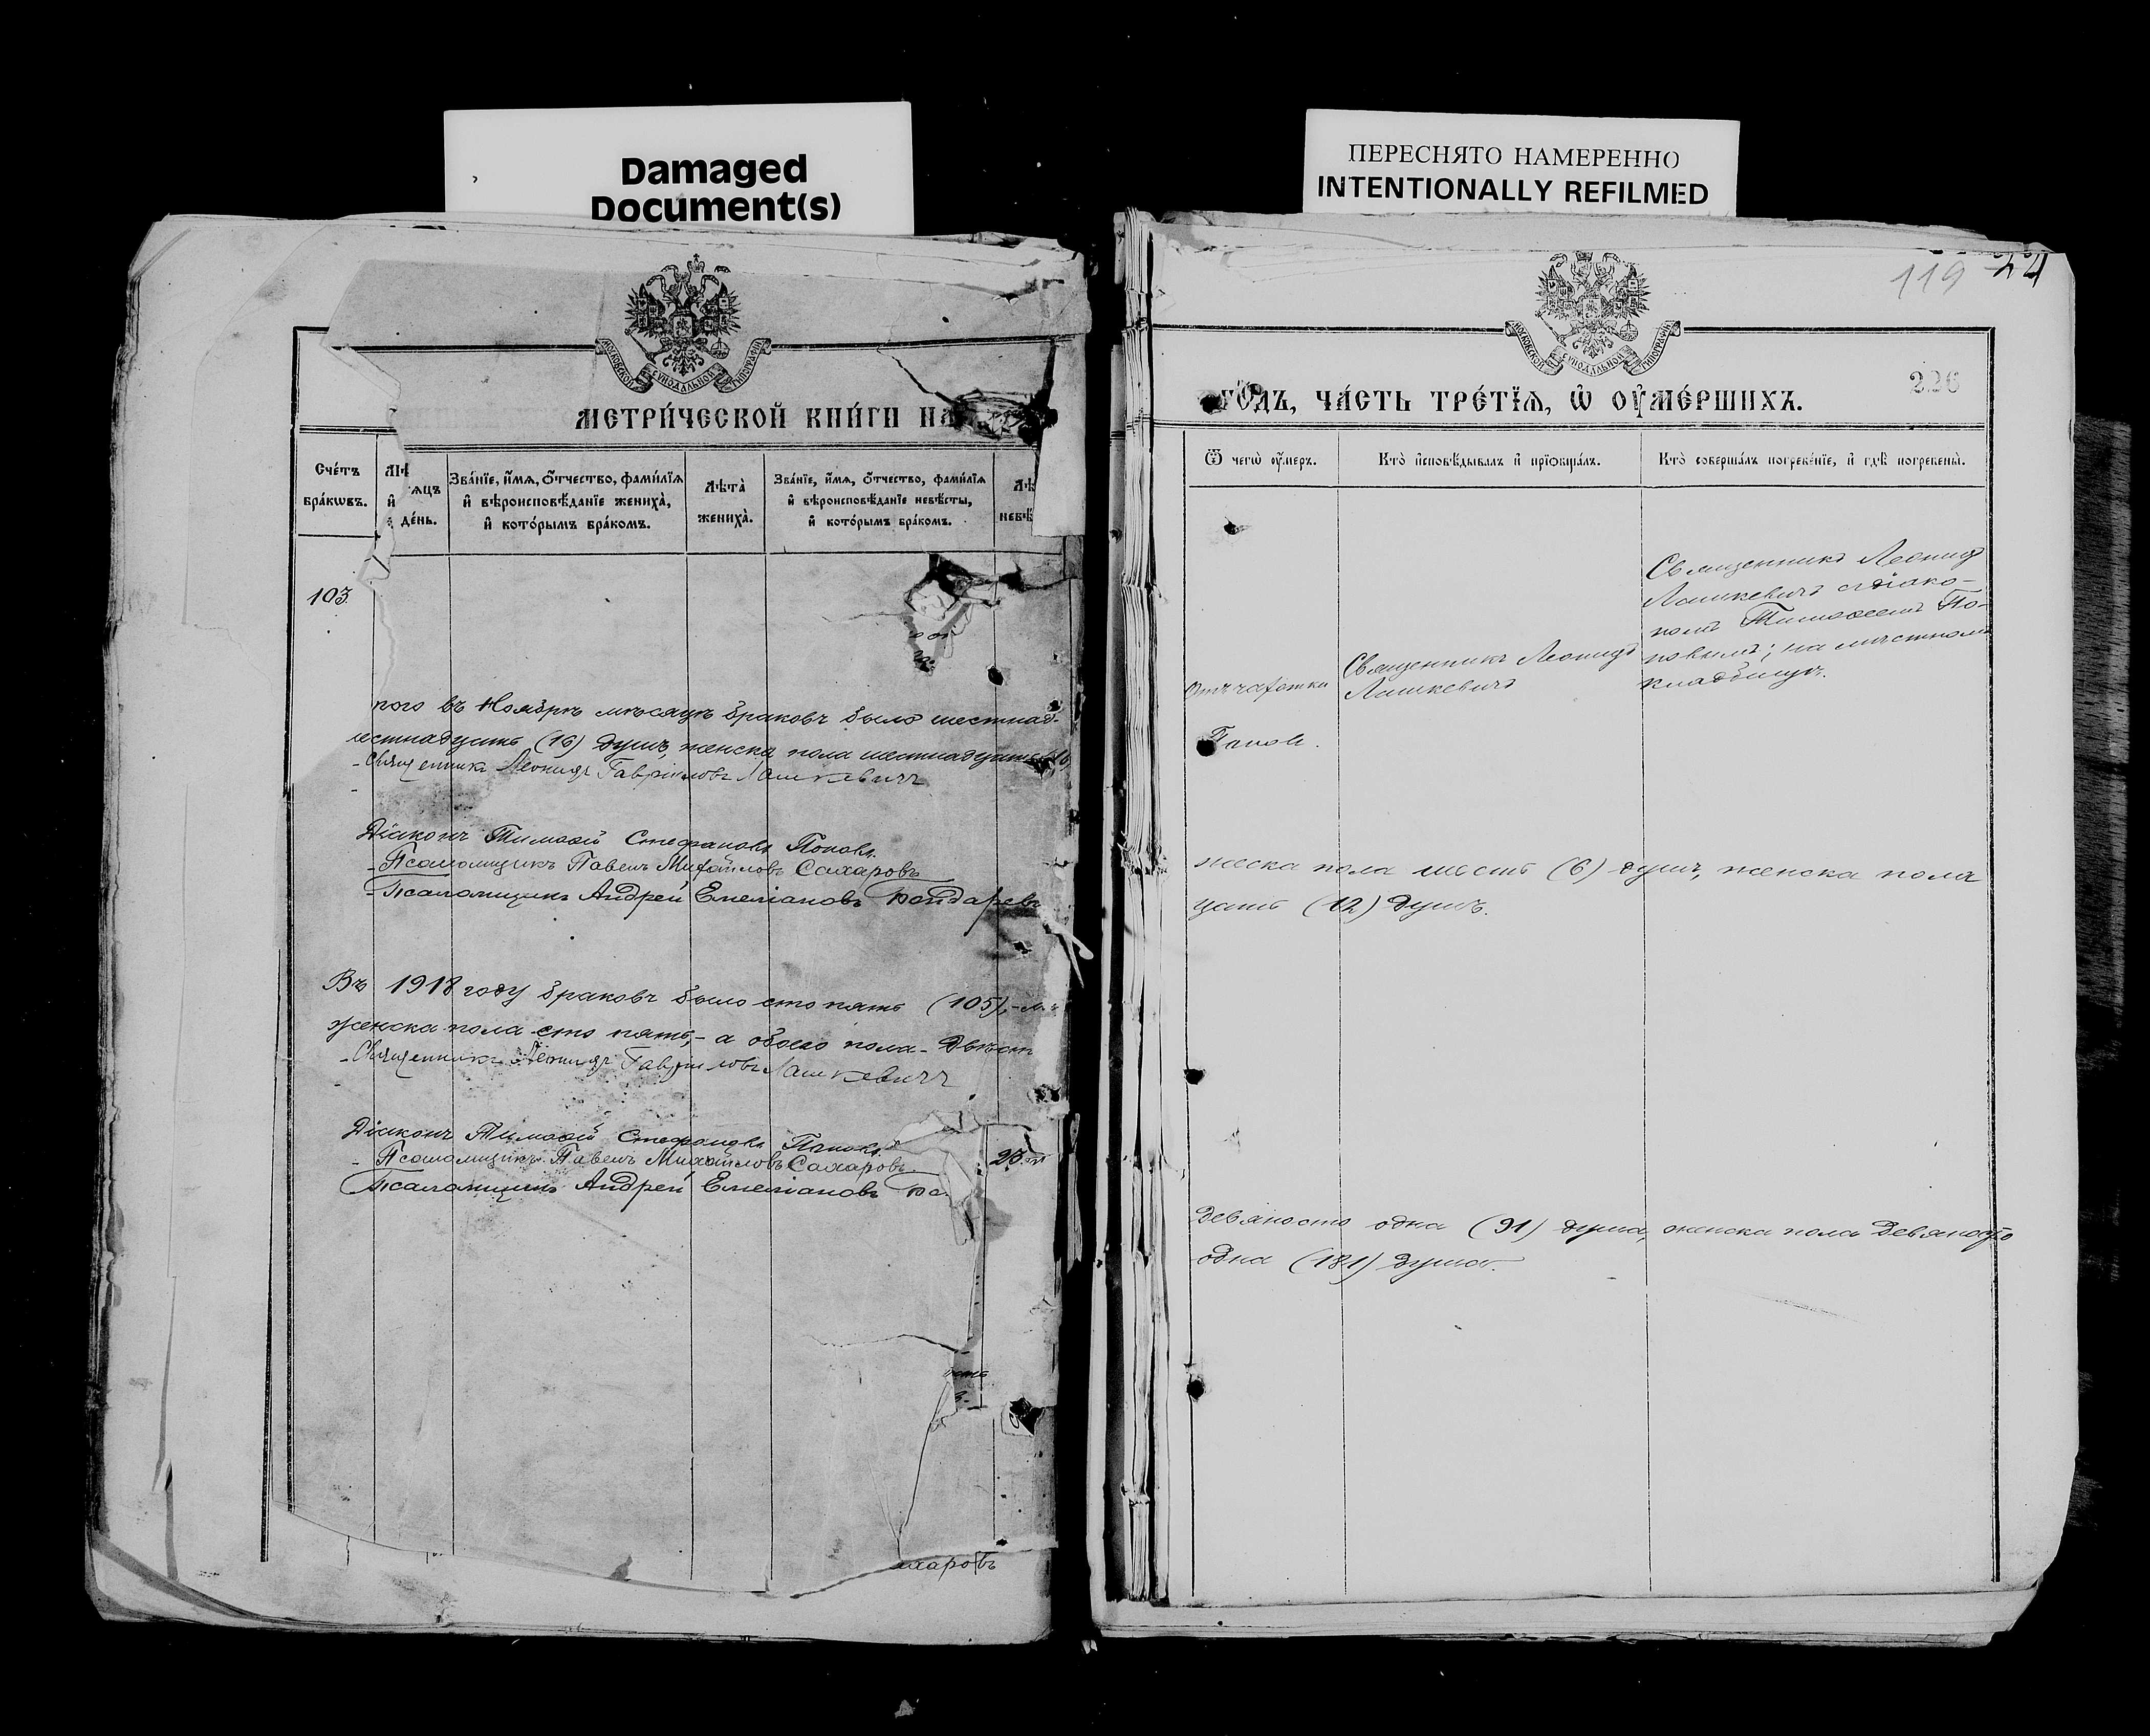 Damaged
Document(s)
ПЕРЕСНЯТО НАМЕРЕННО
INTENTIONALLY REFILMED
МОСКОВСКОЙ СУНОДАЛЬНОЙ ТИПОГРАФІИ
МЕТРИ́ЧЕСКОЙ КНИ́ГИ НА
Сче́тъ
бра́кѡвъ.
яцъ
и҆
де́нь.
Зва́нїе, и҆́мѧ, ѻ҆́тчество, фами́лїѧ
и҆ вѣроисповѣ́данїе жениха̀,
и҆ кото́рымъ бра́комъ.
Лѣ́та
жениха̀.
Зва́нїе, и҆́мѧ, ѻ҆́тчество, фами́лїѧ
и҆ вѣроисповѣ́данїе невѣ́сты,
и҆ кото́рымъ бра́комъ.
Лѣ
невѣ́
103.
ного въ Ноябрѣ мѣсяцѣ браковъ было шестнад-
шестнадцать (16) душъ, женска пола шестнадцать
Священникъ Леонидъ Гавріиловъ Лашкевичъ
Діаконъ Тимоѳей Стефановъ Поповъ.
Псаломщикъ Павелъ Михайловъ Сахаровъ
Псаломщикъ Андрей Емеліановъ Бондаревъ
Въ 1918 году браковъ было сто пять (105),
женска пола сто пять, - а обоего пола - Двѣсти
Священникъ Леонидъ Гавріиловъ Лашкевичъ
Діаконъ Тимоѳей Стефановъ Поповъ
Псаломщикъ Павелъ Михайловъ Сахаровъ
Псаломщикъ Андрей Емеліановъ Бо
23
ахаровъ
119
МОСКОВСКОЙ СУНОДАЛЬНОЙ ТИПОГРАФІИ
226
го́дъ, ча́сть тре́тїѧ, ѡ҆ оу҆ме́ршихъ.
Ѿ чегѡ̀ оу҆́меръ.
Кто̀ и҆сповѣ́дывалъ и҆ прїѡбща́лъ.
Кто̀ соверша́лъ погребе́нїе, и҆ гдѣ̀ погребены̀.
Отъ чахотки
Священникъ Леонидъ
Лашкевичъ
Священникъ Леонидъ
Лашкевичъ съ діако-
номъ Тимоѳеемъ По-
повымъ; на мѣстномъ
кладбищѣ.
Поповъ.
жеска пола шесть (6) душъ, женска пола
цать (12) душъ.
Девяносто одна (91) душа, женска пола Девяносто
одна (181) душа.